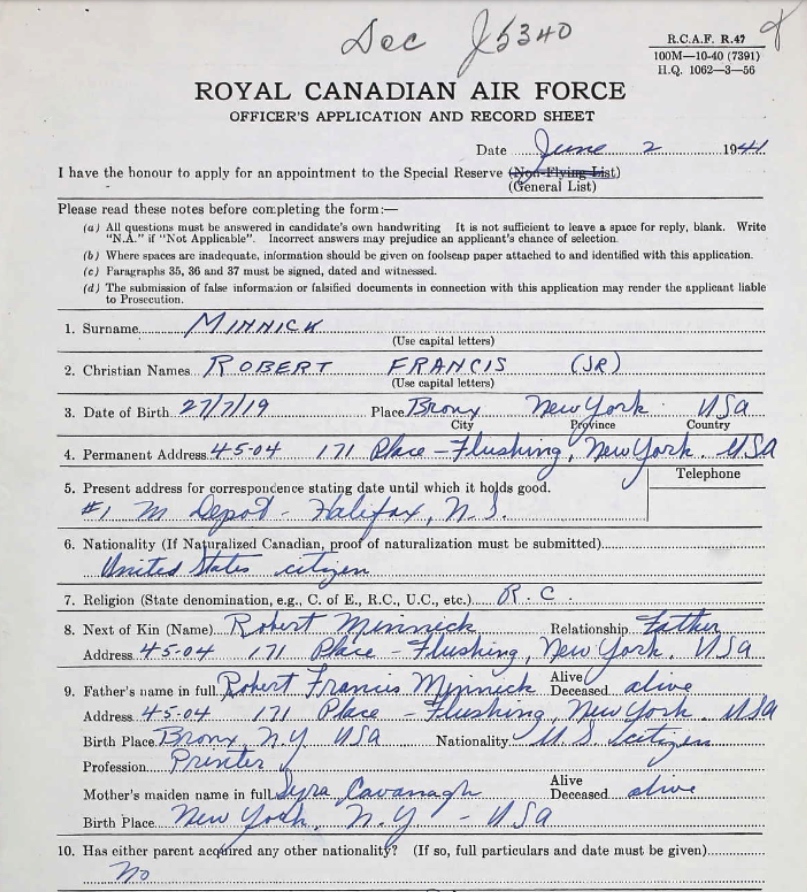 Dec J5340
R.C.A.F. R.47
100M—10-40 (7391)
H.Q. 1062—3—56
ROYAL CANADIAN AIR FORCE
OFFICER'S APPLICATION AND RECORD SHEET
Date June 2 1941
I have the honour to apply for an appointment to the Special Reserve (Non-Flying List)
(General List)
Please read these notes before completing the form:—
(a) All questions must be answered in candidate's own handwriting It is not sufficient to leave a space for reply, blank. Write
"N.A." if "Not Applicable". Incorrect answers may prejudice an applicant's chance of selection.
(b) Where spaces are inadequate, information should be given on foolscap paper attached to and identified with this application.
(c) Paragraphs 35, 36 and 37 must be signed, dated and witnessed.
(d) The submission of false information or falsified documents in connection with this application may render the applicant liable
to Prosecution.
1. Surname MINNICK
(Use capital letters)
2. Christian Names ROBERT FRANCIS (JR)
(Use capital letters)
3. Date of Birth 27/7/19 Place Bronx New York USA
City Province Country
4. Permanent Address 45-04 171 Place - Flushing, New York. USA
Telephone
5. Present address for correspondence stating date until which it holds good.
#1 M Depot - Halifax, N.S.
6. Nationality (If Naturalized Canadian, proof of naturalization must be submitted)
United States citizen
7. Religion (State denomination, e.g., C. of E., R.C., U.C., etc.) R.C.
8. Next of Kin (Name) Robert Minnick Relationship Father
Address 45-04 171 Place - Flushing, New York. USA
9. Father's name in full Robert Francis Minnick Alive
Deceased alive
Address 45-04 171 Place - Flushing, New York. USA
Birth Place Bronx, N.Y USA Nationality U.S. citizen
Profession Printer
Mother's maiden name in full Cavanagh Alive
Deceased alive
Birth Place New York, N.Y - USA
10. Has either parent acquired any other nationality? (If so, full particulars and date must be given)
No